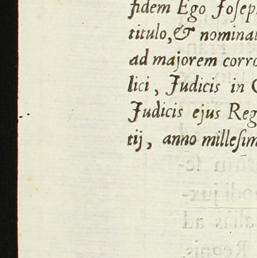 fidem Ego Joseph
titulo, & nominat
ad majorem corro
lici, Judicis in C
Judicis ejus Reg
tij, anno millesim